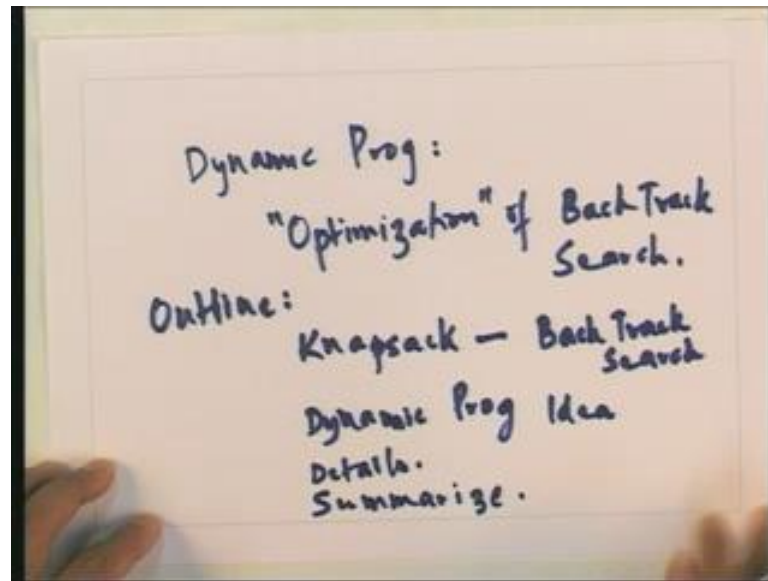 Dynamic Prog:
"Optimization" of BackTrack
Search.
Outline:
Knapsack - BackTrack
Search
Dynamic Prog Idea
Details.
Summarize.